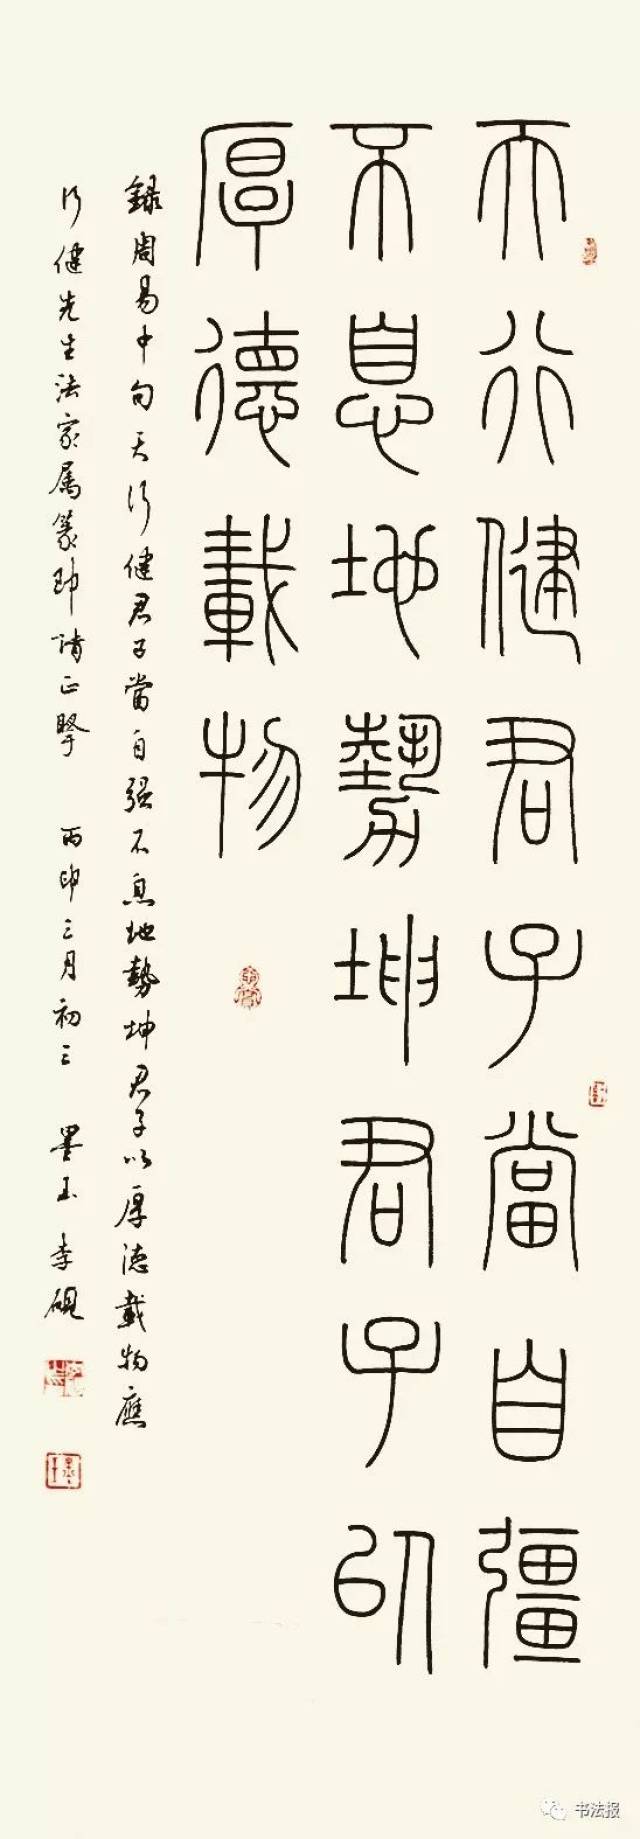 天行健君子當自彊
不息地勢坤君子以
厚德載物
錄周易中句天行健君子當自强不息地勢坤君子以厚德載物應
行健先生法家属篆即请正擎 丙申三月初三 墨玉李硯
书法报